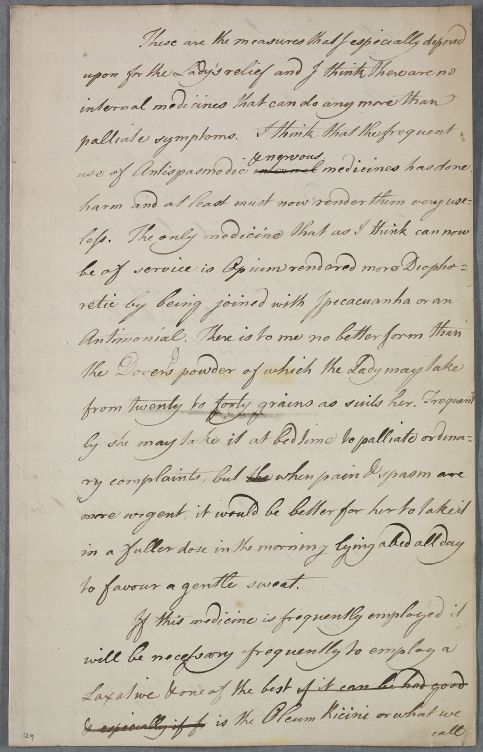 These are the measures that I especially depend
upon for the Lady's relief and I think there are no
internal medicines that can do any more than
palliate symptoms. I think that the frequent
& nervous
use of Antispasmodic internal medicines has done
harm and at least must now render them very use=
less. The only medicine that as I think can now
be of service is Opium rendered more Diapho=
retic by being joined with Ipecacuanha or an
Antimonial. There is to me no better form than
the Dovers powder of which the Lady may take
from twenty to forty grains as suits her. Frequent
ly she may take it at bedtime to palliate ordina=
ry complaints, but the when pain & spasm are
more urgent, it would be better for her to take it
in a fuller dose in the morning lying abed all day
to favour a gentle sweat.
If this medicine is frequently employed it
will be necessary frequently to employ a
Laxative & one of the best if it can be had good
& especially if f is the Oleum Ricini or what we
call
129